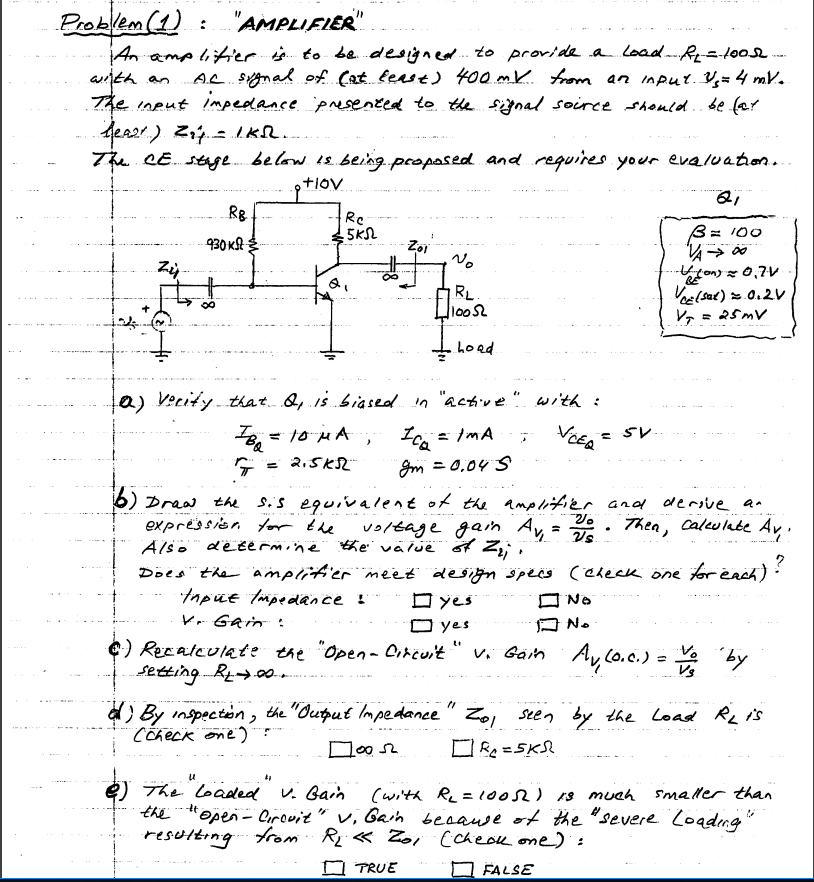 Problem (1) : "AMPLIFIER"
An amplifier is to be designed to provide a load R_L = 100Ω
with an AC signal of (at least) 400 mV from an input v_s = 4 mV.
The input impedance presented to the signal source should be (at
least) Z_i1 = 1KΩ.
The CE stage below is being proposed and requires your evaluation.
+10V
R_B
930KΩ
R_C
5KΩ
Z_i1
∞
Q_1
Z_o1
∞
v_o
R_L
100Ω
+
~
Load
Q_1
β = 100
V_A → ∞
V_BE(on) ≈ 0.7V
V_CE(sat) ≈ 0.2V
V_T = 25mV
a) Verify that Q_1 is biased in "active" with :
I_BQ = 10 μA , I_CQ = 1mA ; V_CEQ = 5V
r_π = 2.5KΩ g_m = 0.04 S
b) Draw the s.s equivalent of the amplifier and derive an
expression for the voltage gain A_v1 = v_o/v_s . Then, Calculate A_v1.
Also determine the value of Z_i1.
Does the amplifier meet design specs (check one for each)?
Input Impedance : □ yes □ No
V. Gain : □ yes □ No
c) Recalculate the "Open-Circuit" V. Gain A_v1(o.c.) = v_o/v_s by
setting R_L → ∞.
d) By inspection, the "Output Impedance" Z_o1 seen by the Load R_L is
(check one) : □ ∞ Ω □ R_C = 5KΩ
e) The "Loaded" V. Gain (with R_L = 100Ω) is much smaller than
the "open-Circuit" V. Gain because of the "severe Loading"
resulting from R_L ≪ Z_o1 (check one) :
□ TRUE □ FALSE